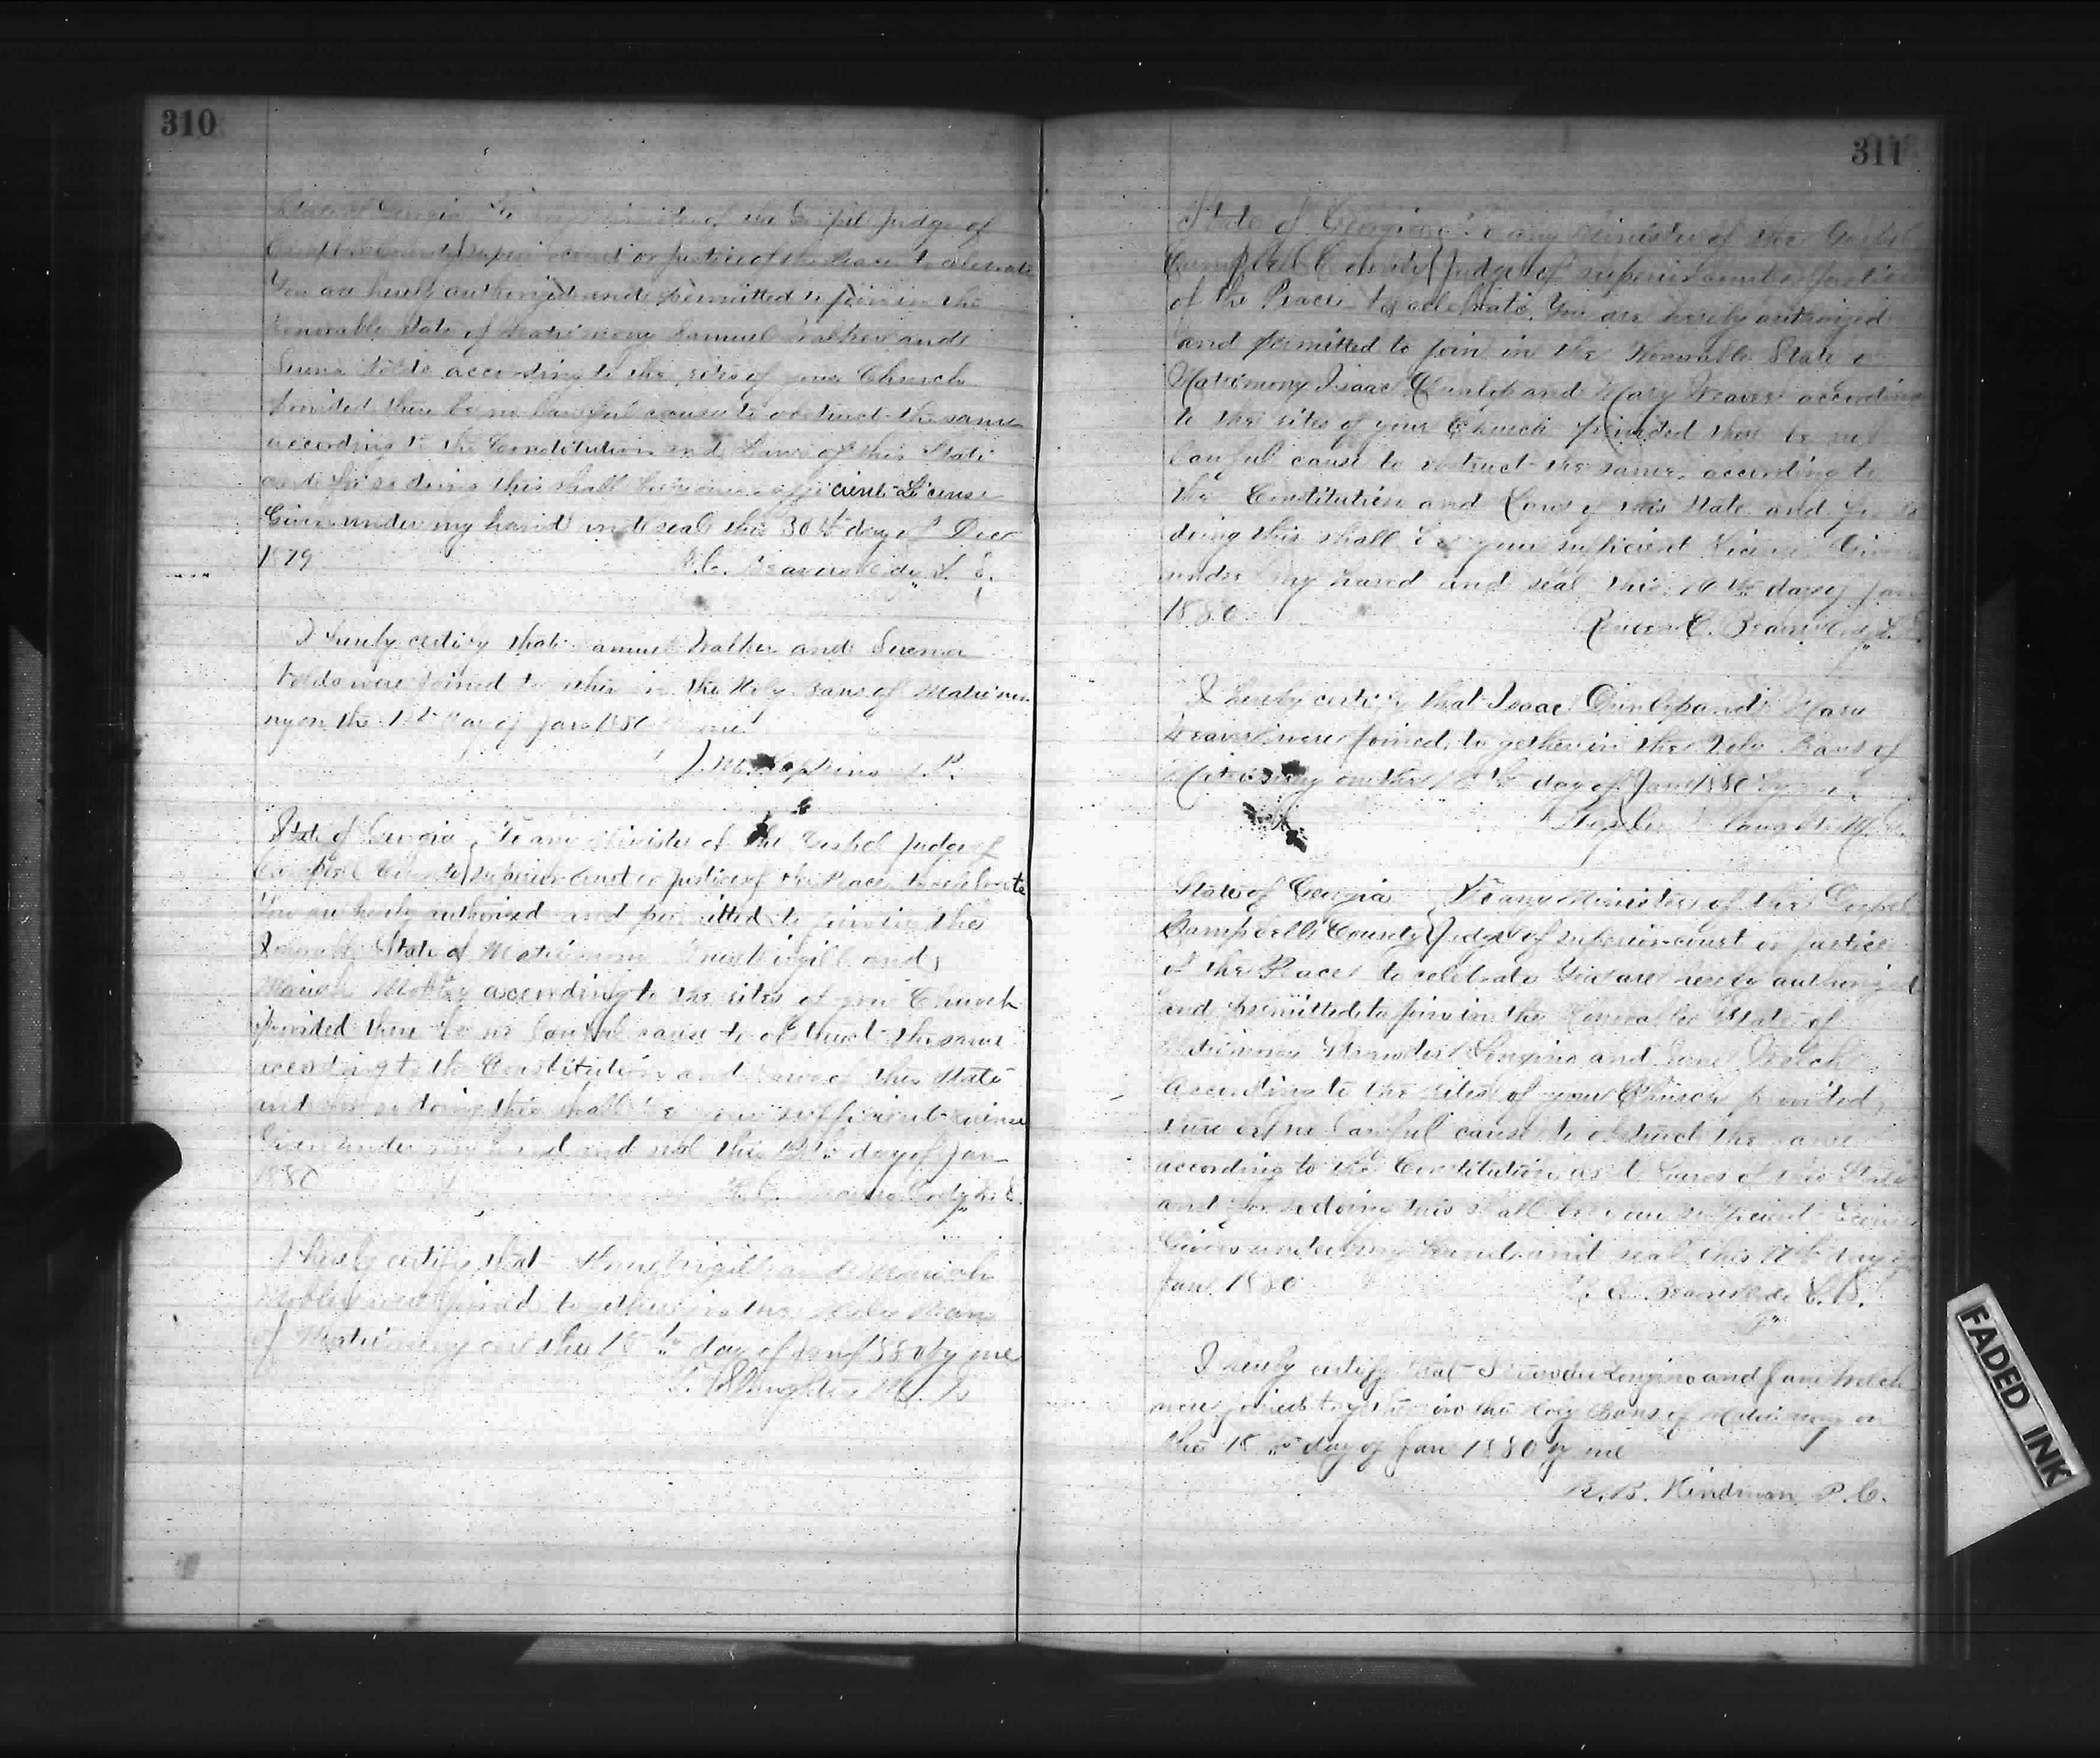 310
State of Georgia To any Minister of the Gospel Judge of
Campbell County Superior court or Justice of the Peace to celebrate
You are hereby authorized and permitted to join in the
Honorable State of Matrimony Samuel Walker and
according to the rites of your Church
provided there be no lawful cause to obstruct the same
according to the Constitution and Laws of this State
and for so doing this shall be your sufficient License
Given under my hand and seal this 30th day of Dec
1879
R.C. Beavers Ordy L. S.
I hereby certify that Samuel Walker and
were joined together in the Holy Bans of Matrimo
ny on the 1st day of Jan 1880 by me
J. M. Hopkins J.P.
State of Georgia To any Minister of the Gospel Judge of
Campbell County Superior court or Justice of the Peace to celebrate
You are hereby authorized and permitted to join in the
Honorable State of Matrimony and
Mariah Mobley according to the rites of your Church
provided there be no lawful cause to obstruct the same
according to the Constitution and Laws of this State
and for so doing this shall be your sufficient License
Given under my hand and seal this day of Jan
1880
R.C. Beavers Ordy L. S.
I hereby certify that and Mariah
Mobley were joined together in the Holy Bans
of Matrimony on the 15th day of Jan 1880 by me
T. Slaughter M. G.
311
State of Georgia To any Minister of the Gospel
Campbell County Judge of superior court or Justice
of the Peace to celebrate. You are hereby authorized
and permitted to join in the Honorable State of
Matrimony Isaac Dunlap and Mary Weaver according
to the rites of your Church provided there be no
lawful cause to obstruct the same, according to
the Constitution and Laws of this State and for so
doing this shall be your sufficient License Given
under my hand and seal this 10th day of Jan
1880
Reuben C. Beavers Ordy L. S.
I hereby certify that Isaac Dunlap and Mary
Weaver were joined together in the Holy Bans of
Matrimony on the day of Jan 1880 by me
Slaughter M. G.
State of Georgia To any Minister of the Gospel
Campbell County Judge of superior court or Justice
of the Peace to celebrate You are hereby authorized
and permitted to join in the Honorable State of
Matrimony Strawder Longino and Jane Welch
according to the rites of your Church provided
there be no lawful cause to obstruct the same
according to the Constitution and Laws of this State
and for so doing this shall be your sufficient License
Given under my hand and seal this day of
Jan 1880
R. C. Beavers Ordy L. S.
I hereby certify that Strawder Longino and Jane Welch
were joined together in the Holy Bans of Matrimony on
the 15th day of Jan 1880 by me
R. B. Hindman P. C.
FADED INK